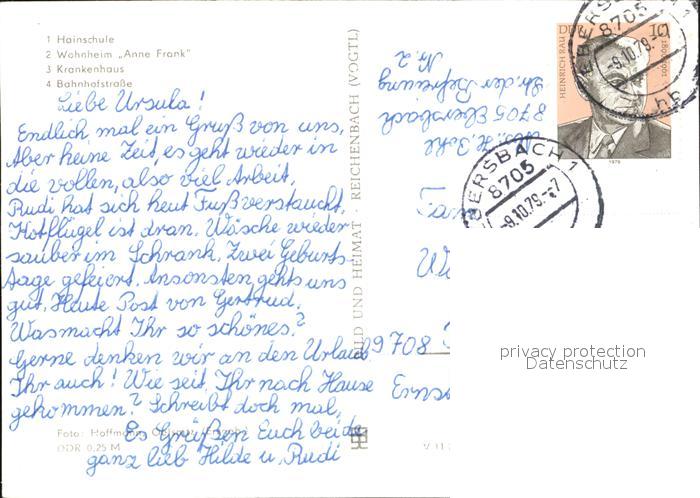 1 Hainschule
2 Wohnheim „Anne Frank"
3 Krankenhaus
4 Bahnhofstraße
Liebe Ursula!
Endlich mal ein Gruß von uns,
Aber keine Zeit, es geht wieder in
die vollen, also viel Arbeit,
Rudi hat sich heut Fuß verstaucht,
Kotflügel ist dran. Wäsche wieder
sauber im Schrank, Zwei Geburts-
tage gefeiert, Ansonsten gehts uns
gut, Heute Post von Gertrud.
Was macht Ihr so schönes?
Gerne denken wir an den Urlaub
Ihr auch! Wie seit Ihr nach Hause
gekommen? Schreibt doch mal,
Es Grüßen Euch beide
ganz lieb Hilde u. Rudi
Foto: Hoffmann,
DDR 0,25 M
BILD UND HEIMAT · REICHENBACH (VOGTL)
V 11
8705 Ebersbach
Str. der Befreiung
Nr. 2
9708
HEINRICH RAU
DDR
10
1899-1961
1979
EBERSBACH 1
8705
-9.10.79.-7
hb
EBERSBACH 1
8705
-9.10.79.-7
privacy protection
Datenschutz